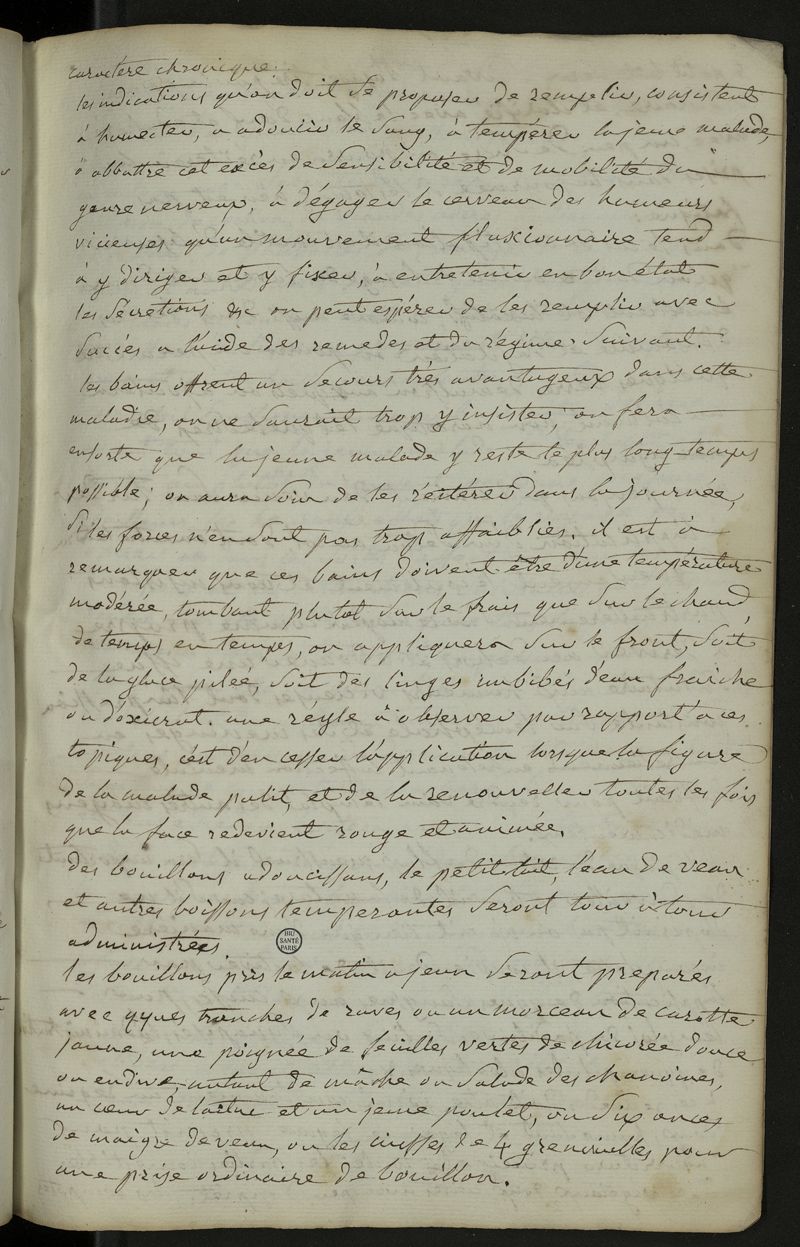 caractère chronique.
les indications qu'on doit se proposer de remplir, consistent
à humecter, a adoucir le sang, à tempérer la jeune malade,
à abbattre cet excès de sensibilité et de mobilité du
genre nerveux, à dégager le cerveau des humeurs
vicieuses qu'un mouvement fluxionnaire tend
à y diriger et y fixer, à entretenir en bon état
les sécretions &c on peut espérer de les remplir avec
succès a l'aide des remedes et du régime suivant.
les bains offrent un secours très avantageux dans cette
maladie, on ne sauroit trop y insister, on fera
ensorte que la jeune malade y reste le plus long temps
possible; on aura soin de les réitérer dans la journée,
si les forces n'en sont pas trop affaiblies. il est à
remarquer que ces bains doivent être d'une température
modérée, tombant plutot sur le frais que sur le chaud,
de temps en temps, on appliquera sur le front, soit
de la glace pileé, soit des linges imbibés d'eau fraiche
ou d'oxicrat. une régle à observer par rapport a ces
topiques, c'est d'en cesser l'application lorsque la figure
de la malade palit, et de la renouveller toutes les fois
que la face redevient rouge et animée.
des bouillons adoucissans, le petit lait, l'eau de veau
et autres boissons temperantes seront tour à tour
administrées.
BIU
SANTÉ
PARIS
les bouillons pris le matin a jeun seront preparés
avec qques tranches de raves ou un morceau de carotte
jaune, une poignée de feuilles vertes de chicorée douce
ou endive, autant de mâche ou salade des chanoines,
un cœur de laitue et un jeune poulet, ou six onces
de maigre de veau, ou les cuisses de 4 grenouilles pour
une prise ordinaire de bouillon.